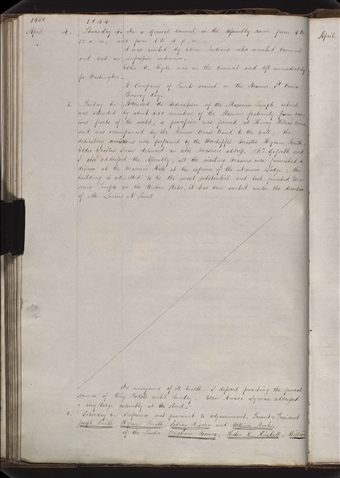 1844
1844
April 4. Thursday 4. In a general council in the Assembly room from 9 to
12 a.m. and from 1 to 4 p.m.
It was visited by eleven Indians who wanted council
and had an impressive interview.
Elder O. Hyde was in the council and left immediately
for Washington.
A Company of Saints arrived on the Steamer St. Croix
Bowery days
5. Friday 5. Attended the dedication of the Masonic Temple which
was attended by about 550 members of the Masonic fraternity from var-
ious parts of the world, a procession was formed at Henry Millers house
and was accompanied by the Nauvoo Brass Band to the hall, the
dedicatory ceremonies were performed by the Worshipful Master Hyrum Smith,
Elder Erastus Snow delivered an able masonic address, Drs Goforth and
I also addressed the Assembly. All the visiting Masons were furnished a
dinner at the Masonic Hall at the expense of the Nauvoo Lodge, the
building is admitted to be the most substantial and best finished Ma-
sonic Temple in the Western States, it has been erected under the direction
of Mr. Lucius N. Scovil
In consequence of ill health, I defered preaching the funeral
sermon of King Follett until Sunday. Elder Amasa Lyman addressed
a very large assembly at the stand.
6. Saturday 6. Conference met pursuant to adjournment. Present President
Joseph Smith, Hyrum Smith, Sidney Rigdon and William Marks,
of the Twelve Brigham Young, Heber C. Kimball, Willard
April